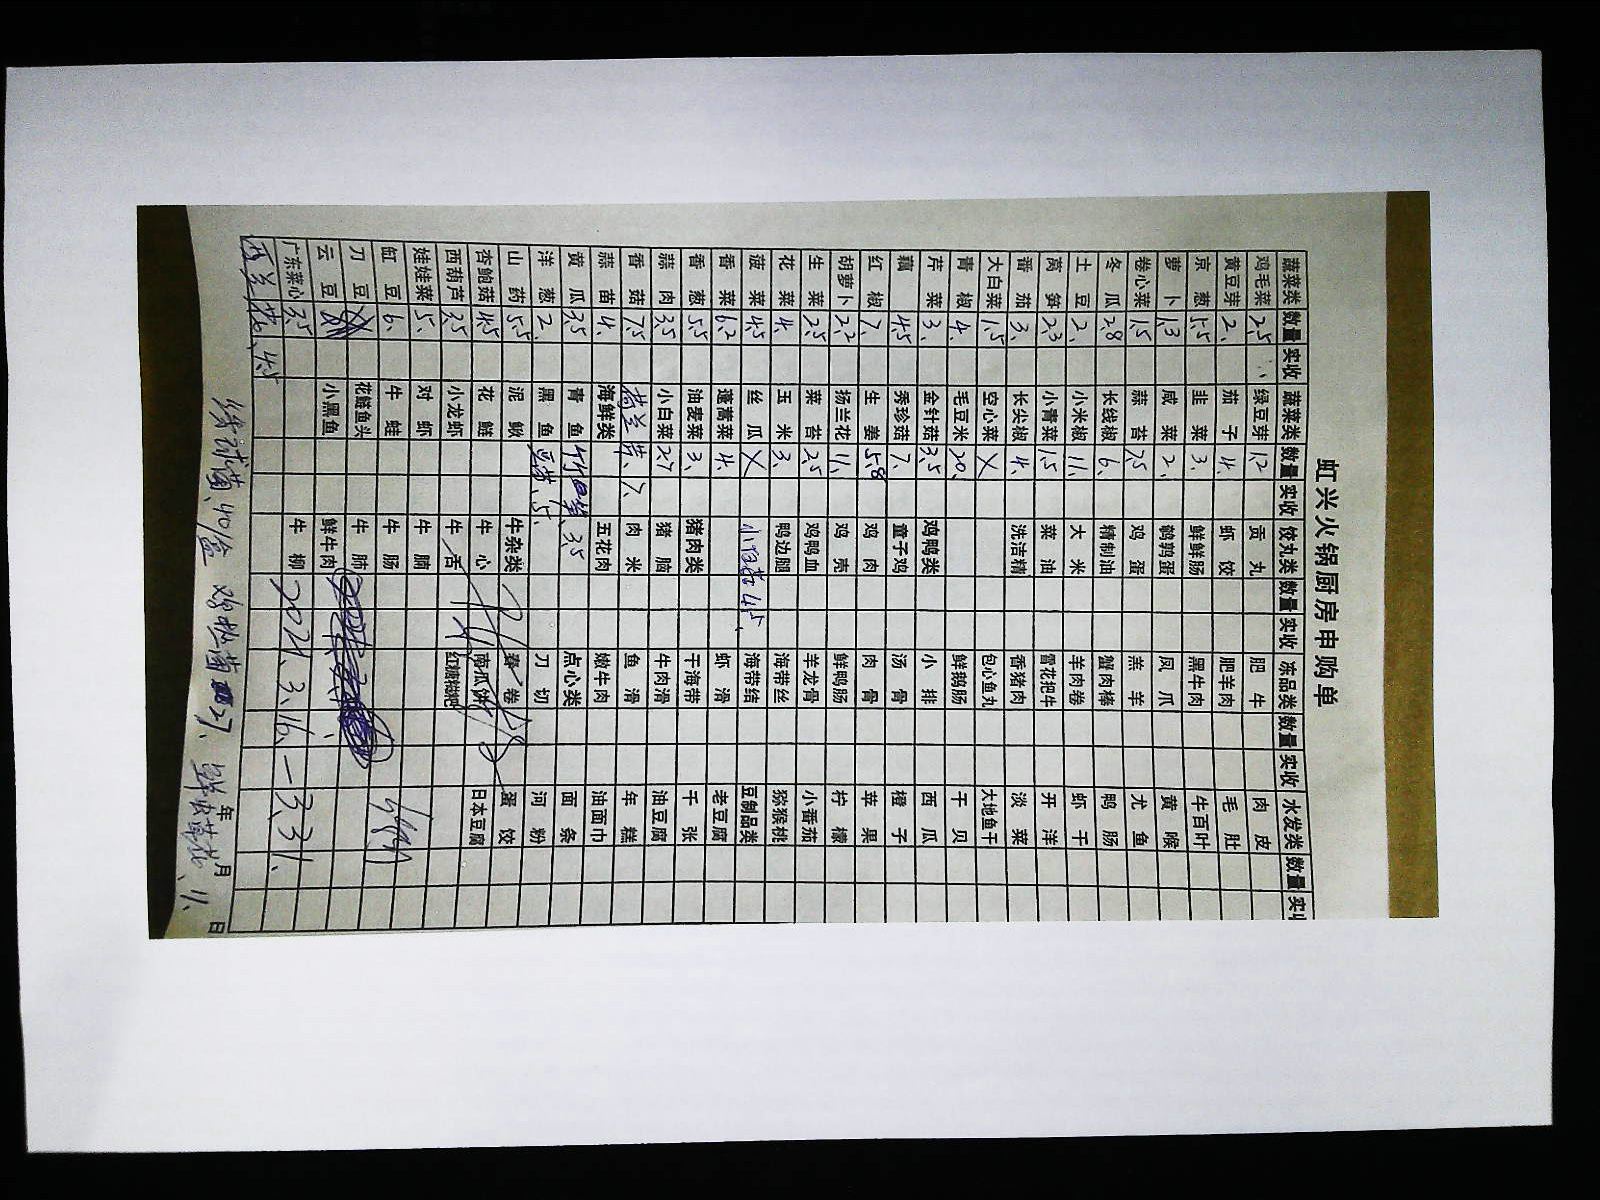 虹兴火锅厨房申购单
蔬菜类 数量 实收 蔬菜类 数量 实收 饺丸类 数量 实收 冻品类 数量 实收 水发类 数量 实收
鸡毛菜 2.5 绿豆芽 1.2 贡丸 肥牛 肉皮
黄豆芽 2. 茄子 4. 虾饺 肥羊肉 毛肚
京葱 5.5 韭菜 3. 鲜鲜肠 黑牛肉 牛百叶
萝卜 1.3 咸菜 2. 鹌鹑蛋 凤爪 黄喉
卷心菜 1.5 蒜苔 7.5 鸡蛋 羔羊 尤鱼
冬瓜 2.8 长线椒 6. 精制油 蟹肉棒 鸭肠
土豆 2. 小米椒 11. 大米 羊肉卷 虾干
莴笋 2.3 小青菜 1.5 菜油 雪花把牛 开洋
番茄 3. 长尖椒 4. 洗洁精 香猪肉 淡菜
大白菜 1.5 空心菜 X 包心鱼丸 大地鱼干
青椒 4. 毛豆米 20. 鲜鹅肠 干贝
芹菜 3. 金针菇 3.5 鸡鸭类 小排 西瓜
藕 4.5 秀珍菇 7. 童子鸡 汤骨 橙子
红椒 7. 生姜 5.8 鸡肉 肉骨 苹果
胡萝卜 2.2 扬兰花 11. 鸡壳 鲜鸭肠 柠檬
生菜 2.5 菜苔 2.5 鸡鸭血 羊龙骨 小番茄
花菜 4. 玉米 3. 鸭边腿 海带丝 猕猴桃
菠菜 4.5 丝瓜 X 4.5. 海带结 豆制品类
香菜 6.2 蓬蒿菜 4. 虾滑 老豆腐
香葱 5.5 油麦菜 3. 猪肉类 干海带 千张
蒜肉 3.5 小白菜 2.7 猪脑 牛肉滑 油豆腐
香菇 7.5 荷兰芹. 7. 肉米 鱼滑 年糕
蒜苗 4. 海鲜类 五花肉 嫩牛肉 油面巾
黄瓜 3.5 青鱼 3.5 点心类 面条
洋葱 2. 黑鱼 刀切 河粉
山药 5.5 泥鳅 牛杂类 春卷 蛋饺
杏鲍菇 4.5 花鲢 牛心 南瓜饼 日本豆腐
西葫芦 3.5 小龙虾 牛舌 红糖糍粑
娃娃菜 5. 对虾 牛腩
缸豆 6. 牛蛙 牛肠
刀豆 花鲢鱼头 牛肺
云豆 小黑鱼 鲜牛肉
广东菜心 3.5 牛柳 2021.3.16.-3.31.
4.5
年 月 日
40/盒 27. 11.